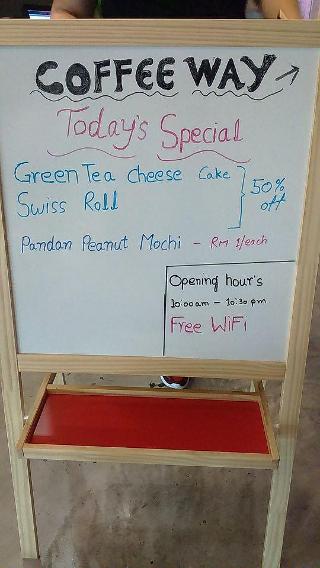 COFFEE WAY
Today's Special
Green Tea cheese cake
Swiss Roll
50% off
Pandan Peanut Mochi - RM 1/each
Opening hour's
10:00am - 10:30pm
Free WiFi